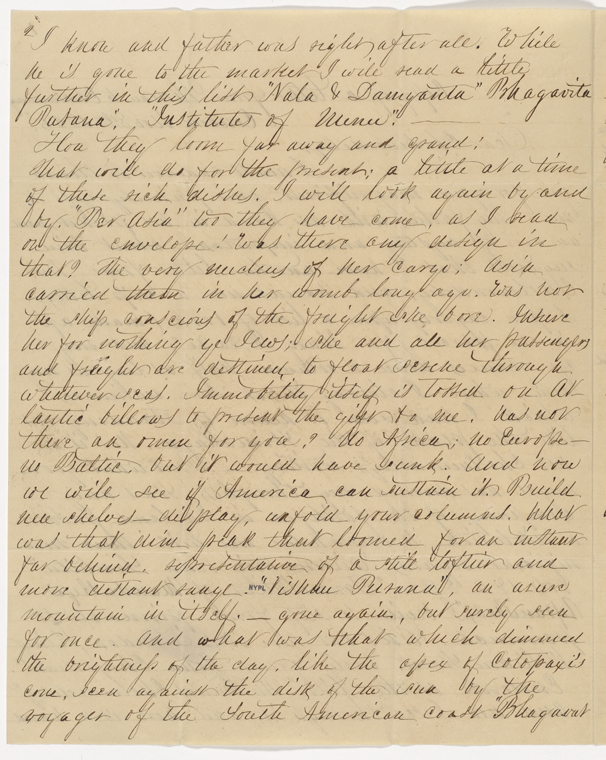 2
I know and father was right after all. While
he is gone to the market I will read a little
further in this list "Nala & Damyanta" "Bhagavita
Purana". "Institutes of Menu".
How they loom far away and grand!
That will do for the present; a little at a time
of these rich dishes. I will look again by and
by. "Per Asia" too they have come, as I read
on the envelope! Was there any design in
that? The very nucleus of her cargo; Asia
carried them in her womb long ago. Was not
the ship conscious of the freight she bore. Insure
her for nothing ye Jews; she and all her passengers
and freight are destined to float serene through
whatever seas. Immobility itself is tossed on At
lantic billows to present the gift to me. Was not
there an omen for you? No Africa; no Europe—
no Baltic, but it would have sunk. And now
we will see if America can sustain it. Build
new shelves— display, unfold your columns. What
was that dim peak that loomed for an instant
far behind, representative of a still loftier and
more distant range. NYPL "Vishnu Purana", an azure
mountain in itself.— gone again, but surely seen
for once. And what was that which dimmed
the brightness of the day, like the apex of Cotopaxi's
cone, seen against the disk of the sun by the
voyager of the South American coast "Bhagavat